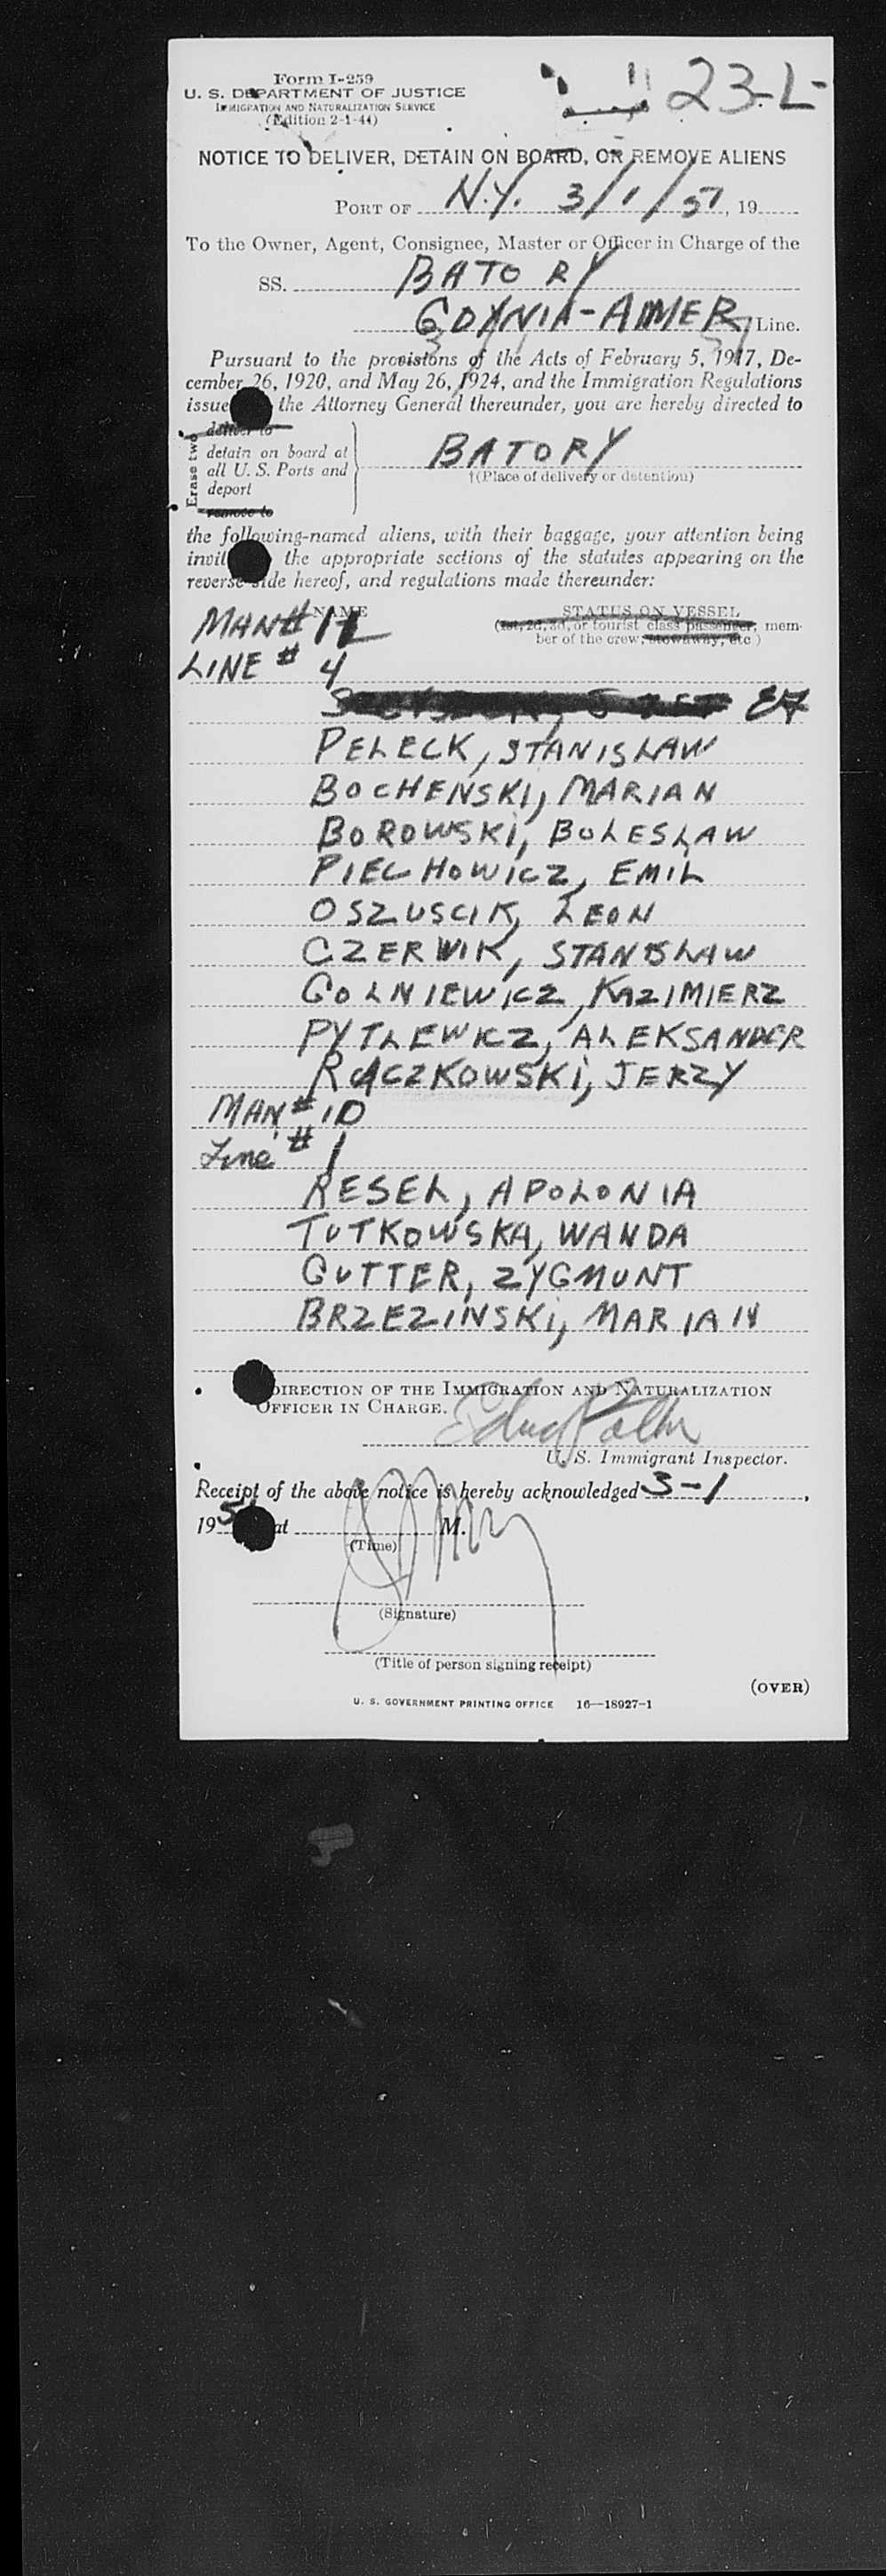 Form I-259
U. S. DEPARTMENT OF JUSTICE
IMMIGRATION AND NATURALIZATION SERVICE
(Edition 2-1-44)
23-L-
NOTICE TO DELIVER, DETAIN ON BOARD, OR REMOVE ALIENS
PORT OF N.Y. 3/1/51, 19
To the Owner, Agent, Consignee, Master or Officer in Charge of the
SS. BATORY
GDYNIA-AMER. Line.
Pursuant to the provisions of the Acts of February 5, 1917, De-
cember 26, 1920, and May 26, 1924, and the Immigration Regulations
issue the Attorney General thereunder, you are hereby directed to
Erase two
deliver to
detain on board at
all U. S. Ports and
deport
remove to
BATORY
†(Place of delivery or detention)
the following-named aliens, with their baggage, your attention being
invit the appropriate sections of the statutes appearing on the
reverse side hereof, and regulations made thereunder:
NAME
STATUS ON VESSEL
(1st, 2d, 3d, or tourist class passenger, mem-
ber of the crew, stowaway, etc.)
MAN #
LINE # 4
PELECK, STANISLAW
BOCHENSKI, MARIAN
BOROWSKI, BOLESLAW
PIECHOWICZ, EMIL
OSZUSCIK, LEON
CZERWIK, STANISLAW
GOLNIEWICZ, KAZIMIERZ
PYTLEWICZ, ALEKSANDER
RACZKOWSKI, JERZY
MAN # 10
Line # 1
RESEL, APOLONIA
TUTKOWSKA, WANDA
GUTTER, ZYGMUNT
BRZEZINSKI, MARIAN
DIRECTION OF THE IMMIGRATION AND NATURALIZATION
OFFICER IN CHARGE.
U. S. Immigrant Inspector.
Receipt of the above notice is hereby acknowledged 3-1,
195 at M.
(Time)
(Signature)
(Title of person signing receipt)
(OVER)
U. S. GOVERNMENT PRINTING OFFICE 16—18927-1